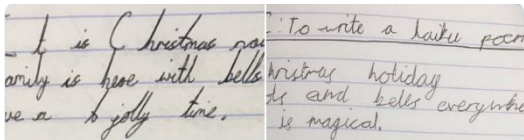 It is Christmas now
amily is here with bells
ve a jolly time.
: To write a haiku poem
hristmas holiday
and bells everywhere
is magical.